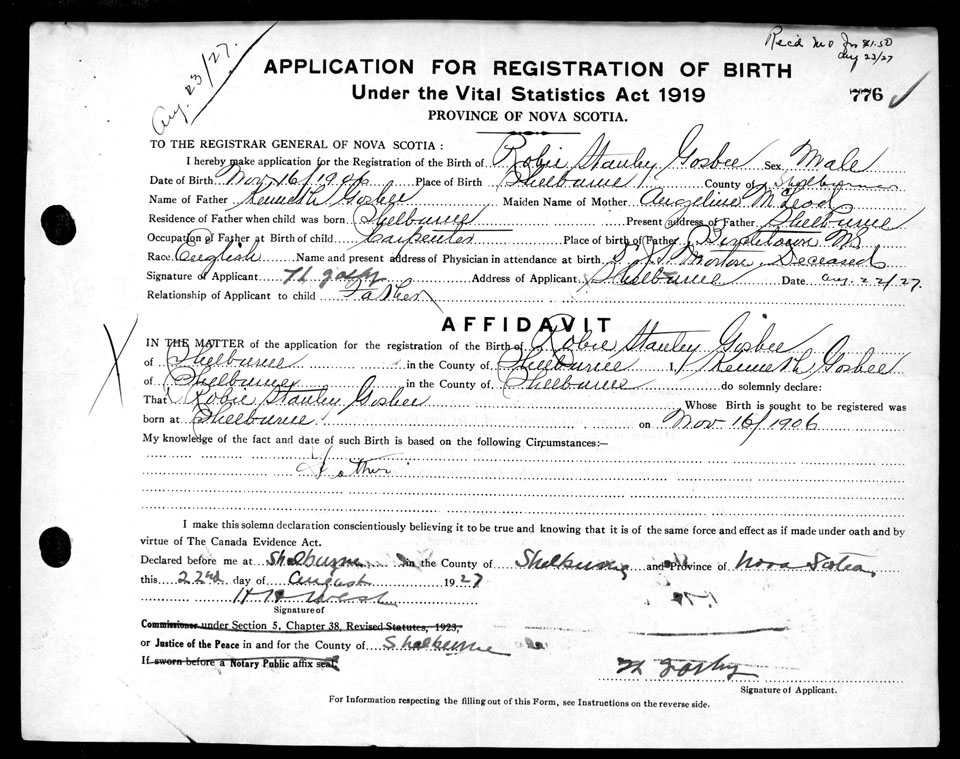 Aug. 23/27.
Rec'd M O for $1.50
Aug 23/27
APPLICATION FOR REGISTRATION OF BIRTH
Under the Vital Statistics Act 1919
776
PROVINCE OF NOVA SCOTIA.
TO THE REGISTRAR GENERAL OF NOVA SCOTIA :
I hereby make application for the Registration of the Birth of Robie Stanley Gosbee Sex Male
Date of Birth Nov 16/1906 Place of Birth Shelburne County of Shelburne
Name of Father Kenneth Gosbee Maiden Name of Mother Angeline McLeod
Residence of Father when child was born Shelburne Present address of Father Shelburne
Occupation of Father at Birth of child Carpenter Place of birth of Father Birchtown NS
Race. English Name and present address of Physician in attendance at birth Morton Deceased
Signature of Applicant Address of Applicant Shelburne Date Aug. 22/27.
Relationship of Applicant to child Father
AFFIDAVIT
IN THE MATTER of the application for the registration of the Birth of Robie Stanley Gosbee
of Shelburne in the County of Shelburne I, Kenneth Gosbee
of Shelburne in the County of Shelburne do solemnly declare:
That Robie Stanley Gosbee Whose Birth is sought to be registered was
born at Shelburne on Nov 16/1906
My knowledge of the fact and date of such Birth is based on the following Circumstances:—
Father
I make this solemn declaration conscientiously believing it to be true and knowing that it is of the same force and effect as if made under oath and by
virtue of The Canada Evidence Act.
Declared before me at Shelburne in the County of Shelburne and Province of Nova Scotia
this 22nd day of August 1927
Signature of
Commissioner under Section 5, Chapter 38, Revised Statutes, 1923,
or Justice of the Peace in and for the County of Shelburne
If sworn before a Notary Public affix seal.
Signature of Applicant.
For Information respecting the filling out of this Form, see Instructions on the reverse side.